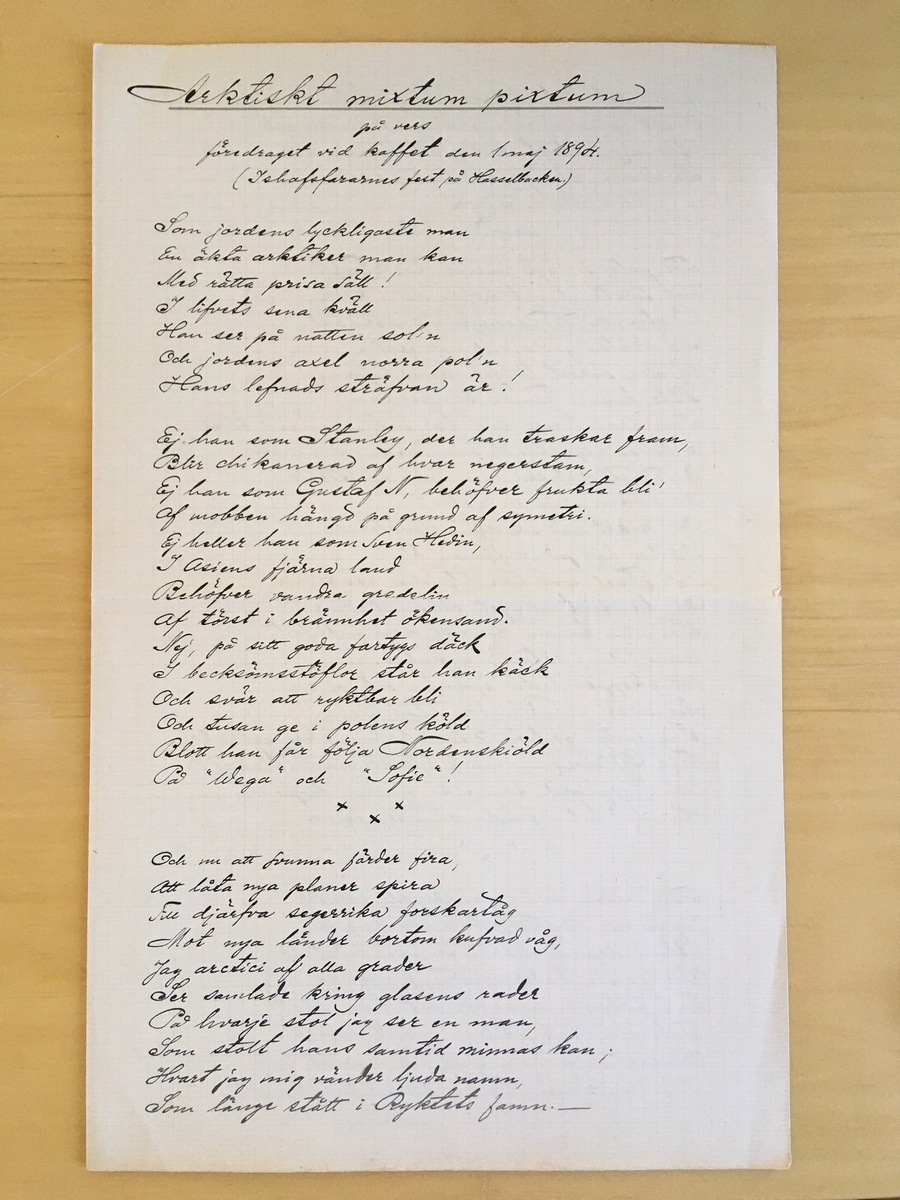 Arktiskt mixtum pixtum
på vers
föredraget vid kaffet den 1 maj 1894.
(Ishafsfararnes fest på Hasselbacken.)
Som jordens lyckligaste man
En äkta arktiker man kan
Med rätta prisa säll!
I lifvets sena kväll
Han ser på natten sol'n
Och jordens axel norra pol'n
Hans lefnads sträfvan är!
Ej han som Stanley, der han traskar fram,
Blir chikanerad af hvar negerstam,
Ej han som Gustaf N, behöfver frukta bli'
Af mobben hängd på grund af symetri.
Ej heller han som Sven Hedin,
I Asiens fjärna land
Behöfver vandra gredelin
Af törst i brännhet ökensand.
Nej, på sitt goda fartygs däck
I becksömsstöflor står han käck
Och svär att ryktbar bli
Och tusan ge i polens köld
Blott han får följa Nordenskiöld
På "Wega" och "Sofie"!
x x
x
Och nu att svunna färder fira,
Att låta nya planer spira
Till djärfva segerrika forskartåg
Mot nya länder bortom kufvad våg,
Jag arctici af alla grader
Ser samlade kring glasens rader
På hvarje stol jag ser en man,
Som stolt hans samtid minnas kan;
Hvart jag mig vänder ljuda namn,
Som länge stått i Ryktets famn.—